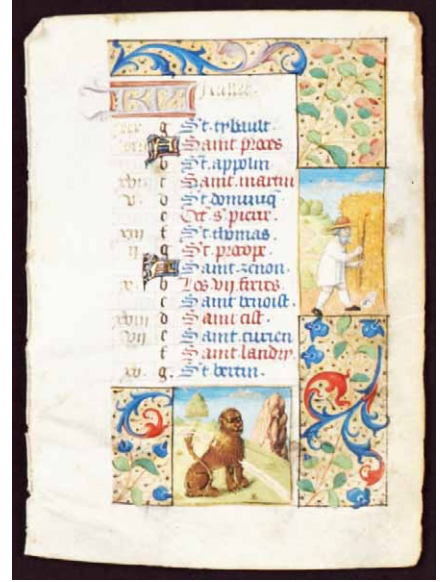 KL Juillet.
g St tybault.
A Saint proces
b St appolin
xviii c Saint martin
v. d St dominiq
e Oct s pierre.
xiii f St thomas.
ii g St procope.
A Saint zenon.
x. b Les vii freres
c Saint benoist.
xviii d Saint cist.
vii e Saint turien
f Saint landry.
xv. g. St bertin.